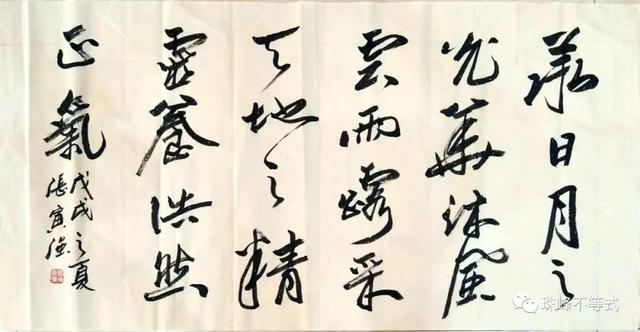 承日月之
光華沐風
雲雨露采
天地之精
靈養浩然
正氣
戊戌之夏
張寅
珠峰不等式